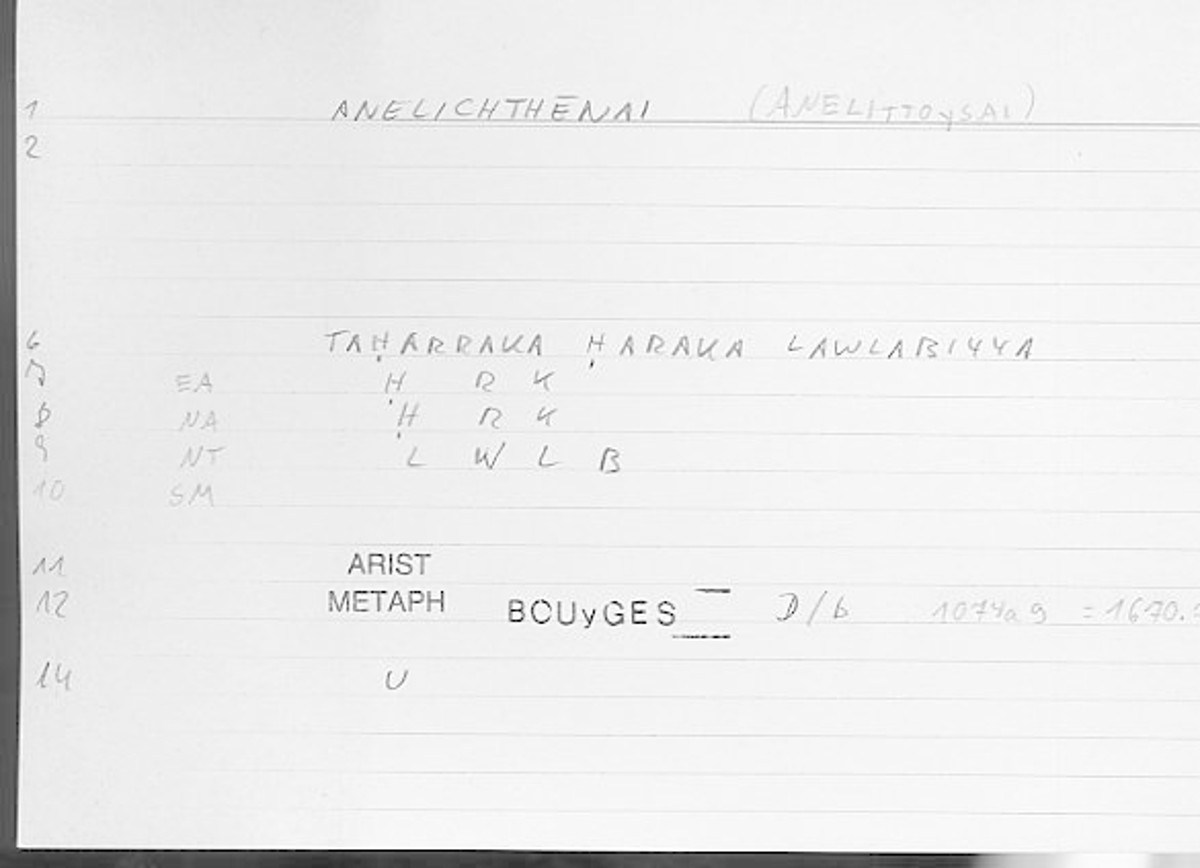 1 ANELICHTHĒNAI (ANELITTOySAI)
2
6 TAḤARRAKA ḤARAKA LAWLABIYYA
7 EA Ḥ R K
8 NA Ḥ R K
9 NT L W L B
10 SM
11 ARIST
12 METAPH BOUyGES D/b 1074a9 = 1670.
14 U